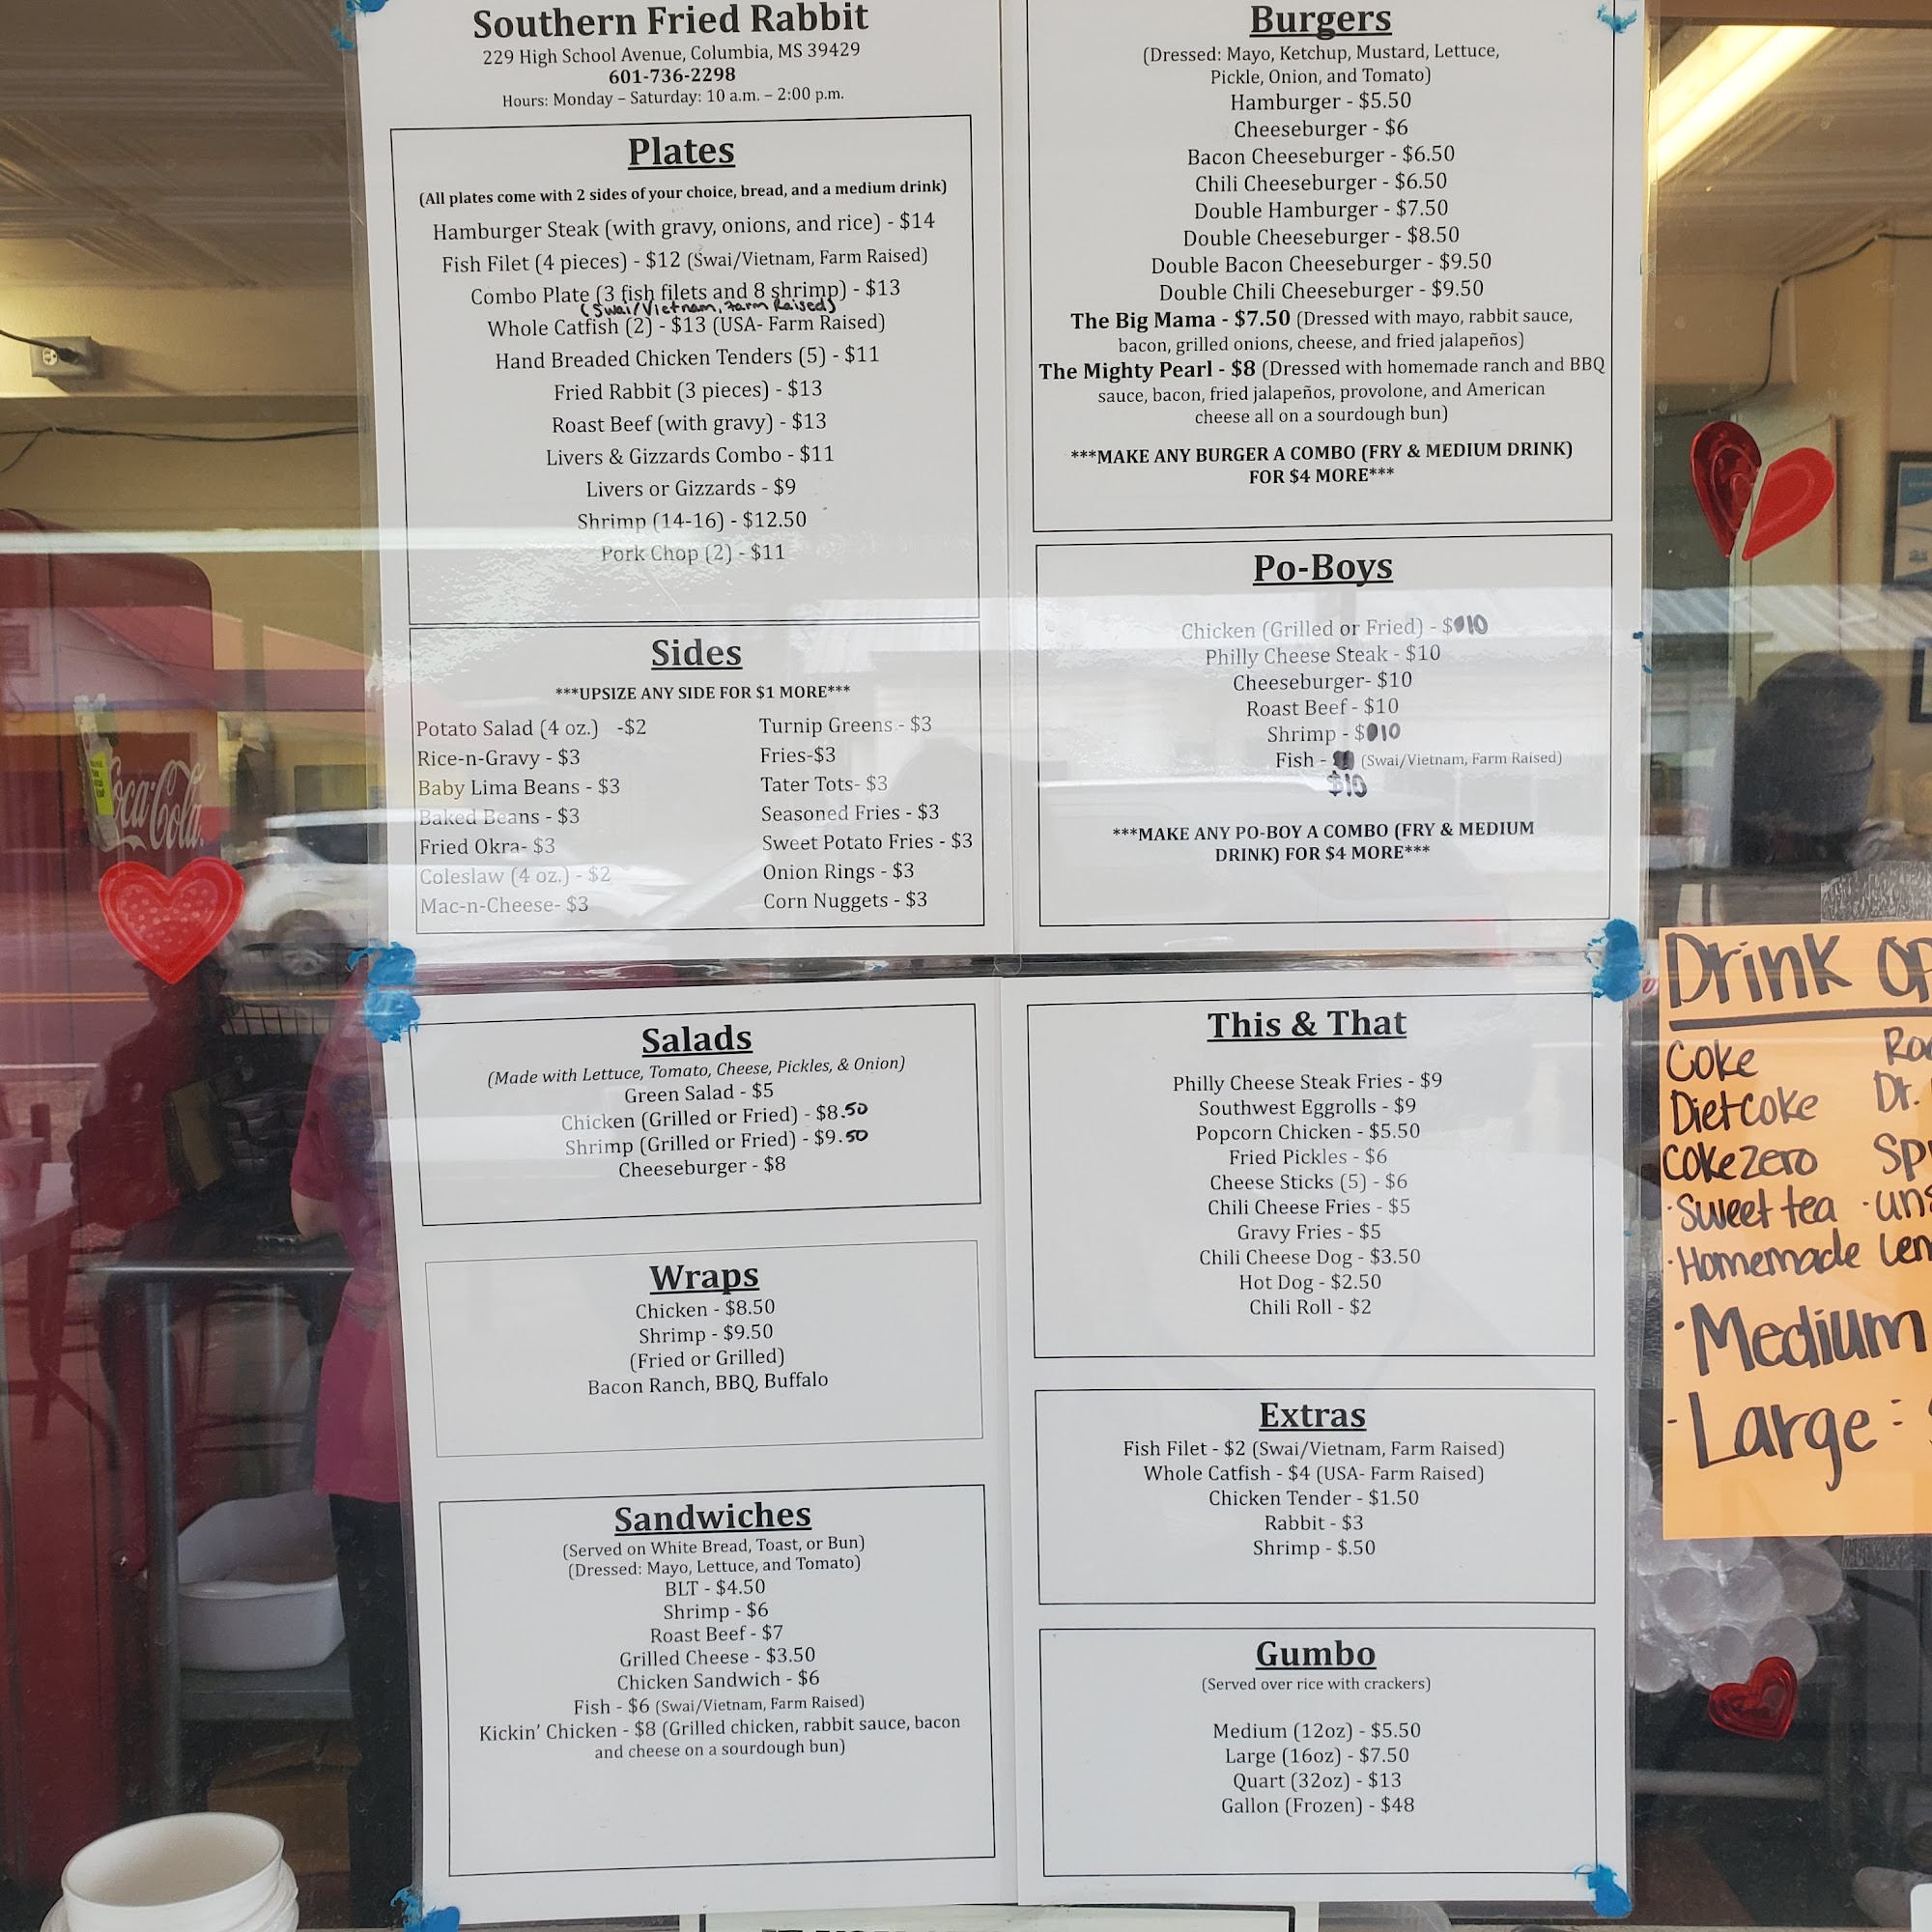 Southern Fried Rabbit
229 High School Avenue, Columbia, MS 39429
601-736-2298
Hours: Monday – Saturday: 10 a.m. – 2:00 p.m.
Plates
(All plates come with 2 sides of your choice, bread, and a medium drink)
Hamburger Steak (with gravy, onions, and rice) - $14
Fish Filet (4 pieces) - $12 (Swai/Vietnam, Farm Raised)
Combo Plate (3 fish filets and 8 shrimp) - $13
(Swai/Vietnam, Farm Raised)
Whole Catfish (2) - $13 (USA- Farm Raised)
Hand Breaded Chicken Tenders (5) - $11
Fried Rabbit (3 pieces) - $13
Roast Beef (with gravy) - $13
Livers & Gizzards Combo - $11
Livers or Gizzards - $9
Shrimp (14-16) - $12.50
Pork Chop (2) - $11
Sides
***UPSIZE ANY SIDE FOR $1 MORE***
Potato Salad (4 oz.) -$2
Rice-n-Gravy - $3
Baby Lima Beans - $3
Baked Beans - $3
Fried Okra- $3
Coleslaw (4 oz.) - $2
Mac-n-Cheese- $3
Turnip Greens - $3
Fries-$3
Tater Tots- $3
Seasoned Fries - $3
Sweet Potato Fries - $3
Onion Rings - $3
Corn Nuggets - $3
Burgers
(Dressed: Mayo, Ketchup, Mustard, Lettuce,
Pickle, Onion, and Tomato)
Hamburger - $5.50
Cheeseburger - $6
Bacon Cheeseburger - $6.50
Chili Cheeseburger - $6.50
Double Hamburger - $7.50
Double Cheeseburger - $8.50
Double Bacon Cheeseburger - $9.50
Double Chili Cheeseburger - $9.50
The Big Mama - $7.50 (Dressed with mayo, rabbit sauce,
bacon, grilled onions, cheese, and fried jalapeños)
The Mighty Pearl - $8 (Dressed with homemade ranch and BBQ
sauce, bacon, fried jalapeños, provolone, and American
cheese all on a sourdough bun)
***MAKE ANY BURGER A COMBO (FRY & MEDIUM DRINK)
FOR $4 MORE***
Po-Boys
Chicken (Grilled or Fried) - $10
Philly Cheese Steak - $10
Cheeseburger- $10
Roast Beef - $10
Shrimp - $10
Fish - (Swai/Vietnam, Farm Raised)
$10
***MAKE ANY PO-BOY A COMBO (FRY & MEDIUM
DRINK) FOR $4 MORE***
Salads
(Made with Lettuce, Tomato, Cheese, Pickles, & Onion)
Green Salad - $5
Chicken (Grilled or Fried) - $8.50
Shrimp (Grilled or Fried) - $9.50
Cheeseburger - $8
Wraps
Chicken - $8.50
Shrimp - $9.50
(Fried or Grilled)
Bacon Ranch, BBQ, Buffalo
Sandwiches
(Served on White Bread, Toast, or Bun)
(Dressed: Mayo, Lettuce, and Tomato)
BLT - $4.50
Shrimp - $6
Roast Beef - $7
Grilled Cheese - $3.50
Chicken Sandwich - $6
Fish - $6 (Swai/Vietnam, Farm Raised)
Kickin' Chicken - $8 (Grilled chicken, rabbit sauce, bacon
and cheese on a sourdough bun)
This & That
Philly Cheese Steak Fries - $9
Southwest Eggrolls - $9
Popcorn Chicken - $5.50
Fried Pickles - $6
Cheese Sticks (5) - $6
Chili Cheese Fries - $5
Gravy Fries - $5
Chili Cheese Dog - $3.50
Hot Dog - $2.50
Chili Roll - $2
Extras
Fish Filet - $2 (Swai/Vietnam, Farm Raised)
Whole Catfish - $4 (USA- Farm Raised)
Chicken Tender - $1.50
Rabbit - $3
Shrimp - $.50
Gumbo
(Served over rice with crackers)
Medium (12oz) - $5.50
Large (16oz) - $7.50
Quart (32oz) - $13
Gallon (Frozen) - $48
Drink
Coke
Diet Coke Dr.
Coke Zero
·Sweet tea
·Homemade
·Medium
-Large:
Coca-Cola